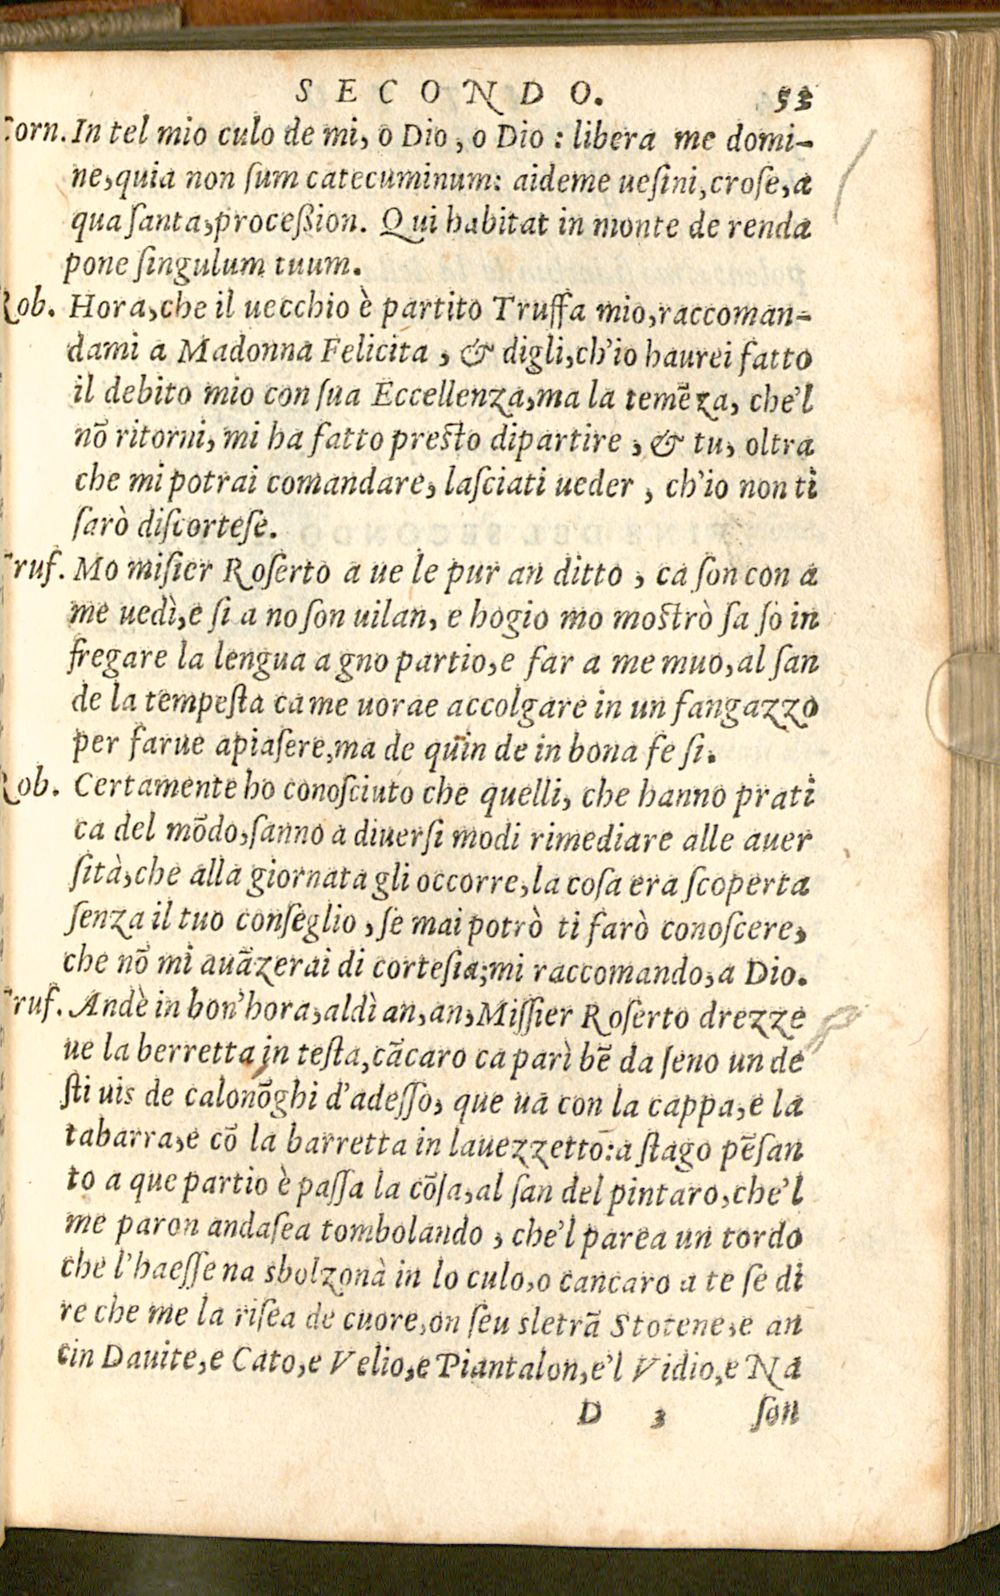 SECONDO. 53
Corn. In tel mio culo de mi, o Dio, o Dio: libera me domi-
ne, quia non ſum catecuminum: aideme ueſini, croſe, a
qua ſanta, proceßion. Qui habitat in monte de renda
pone ſingulum tuum.
Rob. Hora, che il uecchio è partito Truffa mio, raccoman-
dami a Madonna Felicita, & digli, ch'io haurei fatto
il debito mio con ſua Eccellenza, ma la temēza, che'l
nō ritorni, mi ha fatto preſto dipartire, & tu, oltra
che mi potrai comandare, laſciati ueder, ch'io non ti
ſarò diſcorteſe.
Truf. Mo miſier Roſerto a ue le pur an ditto, ca ſon con a
me uedì, e ſi a no ſon uilan, e hogio mo moſtrò ſa ſo in
fregare la lengua a gno partio, e far a me muo, al ſan
de la tempeſta ca me uorae accolgare in un fangazzo
per farue apiaſere, ma de quin de in bona fe ſi.
Rob. Certamente ho conoſciuto che quelli, che hanno prati
ca del mōdo, ſanno a diuerſi modi rimediare alle auer
ſità, che alla giornata gli occorre, la coſa era ſcoperta
ſenza il tuo conſeglio, ſe mai potrò ti farò conoſcere,
che nō mi auāzerai di corteſia; mi raccomando, a Dio.
Truf. Andè in bon'hora, aldì an, an, Miſſier Roſerto drezze
ue la berretta in teſta, cācaro ca parì bē da ſeno un de
ſti uis de calonōghi d'adeſſo, que ua con la cappa, e la
tabarra, e cō la barretta in lauezzetto: a ſtago pēſan
to a que partio è paſſa la cōſa, al ſan del pintaro, che'l
me paron andaſea tombolando, che'l parea un tordo
che l'haeſſe na sbolzonà in lo culo, o cancaro a te ſe di
re che me la riſea de cuore, on ſeu sletrā Stotene, e an
cin Dauite, e Cato, e Velio, e Piantalon, e'l Vidio, e Na
D 3 ſon